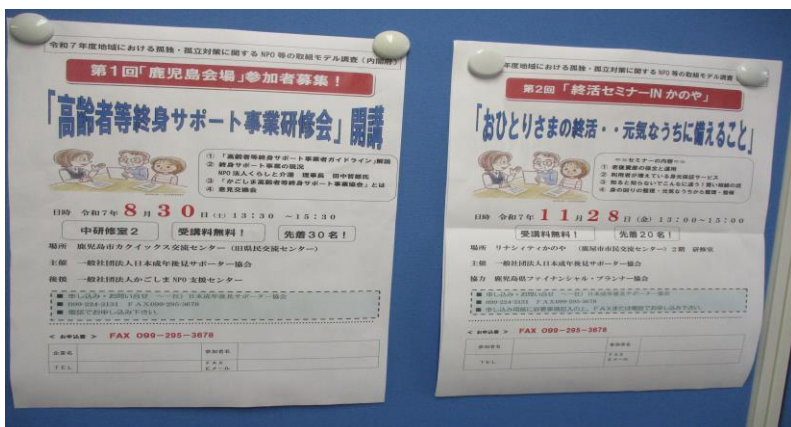 令和7年度地域における孤独・孤立対策に関するNPO等の取組モデル調査(内閣府)
第1回「鹿児島会場」参加者募集！
「高齢者等終身サポート事業研修会」開講
① 「高齢者等終身サポート事業者ガイドライン」解説
② 終身サポート事業の現況
NPO法人くらしと介護 理事長 田中哲郎氏
③ 「かごしま高齢者等終身サポート事業協会」とは
④ 意見交換会
日時 令和7年8月30日(土)13:30 ～15:30
中研修室2 受講料無料！ 先着30名！
場所 鹿児島市カクイックス交流センター(旧県民交流センター)
主催 一般社団法人日本成年後見サポーター協会
後援 一般社団法人かごしまNPO支援センター
■ 申し込み・お問い合せ ～一社)日本成年後見サポーター協会
■ 099-224-3131 FAX099-295-3678
■ 電話でお申し込み下さい。
< お申込書 > FAX 099-295-3678
企業名 参加者名
TEL FAX
Eメール
年度地域における孤独・孤立対策に関するNPO等の取組モデル調査
第2回「終活セミナーINかのや」
「おひとりさまの終活・・元気なうちに備えること」
＝＝セミナーの内容＝＝
① 老後資産の保全と運用
② 利用者が増えている身元保証サービス
③ 知ると知らないでこんなに違う！賢い相続の話
④ 身の回りの整理・元気なうちから整理・整頓
日時 令和7年11月28日(金)13:00～15:00
受講料無料！ 先着20名！
場所 リナシティかのや (鹿屋市市民交流センター)2階 研修室
主催 一般社団法人日本成年後見サポーター協会
協力 鹿児島県ファイナンシャル・プランナー協会
■ 申し込み・お問い合せ ～一社)日本成年後見サポーター協会
■ 099-224-3131 FAX099-295-3678
< お申込書 > FAX 099-295-3678
参加者名 参加者名
TEL FAX
Eメール